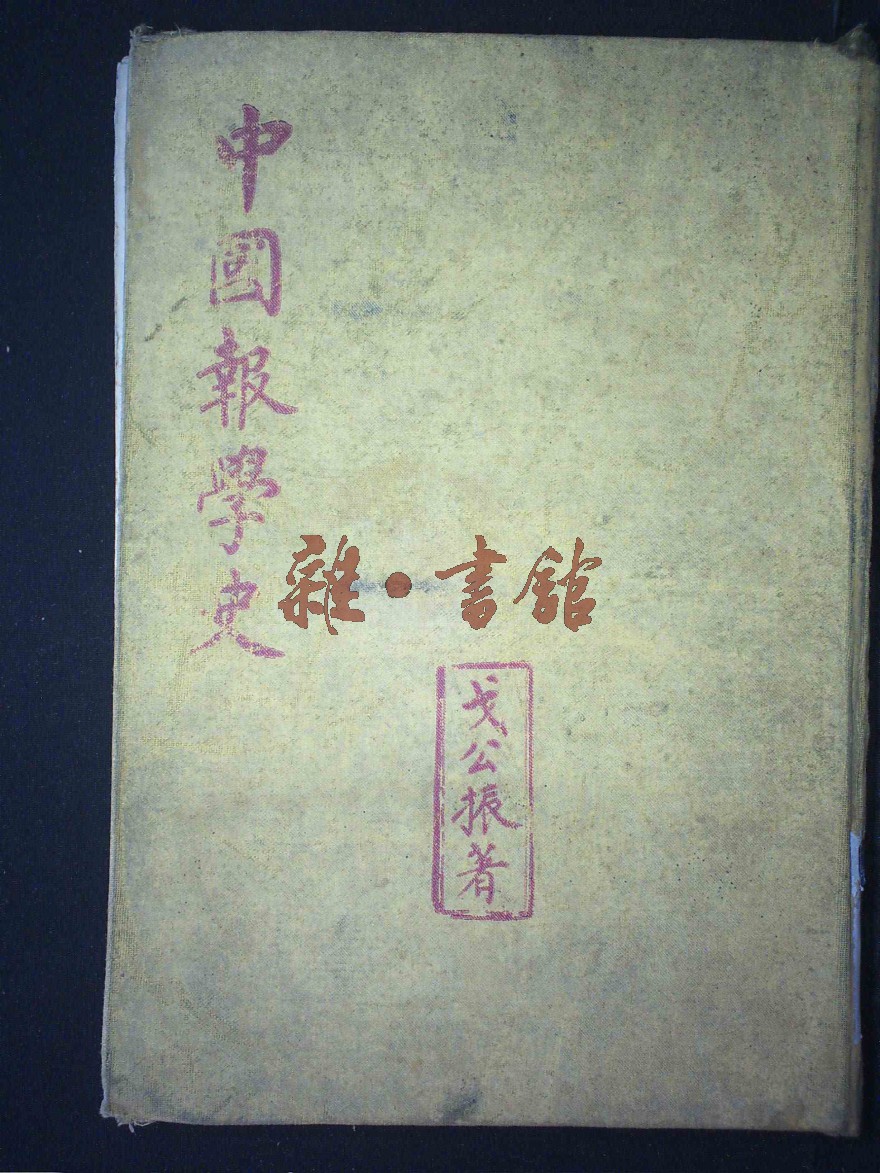 中國報學史
戈公振著
雜·書館